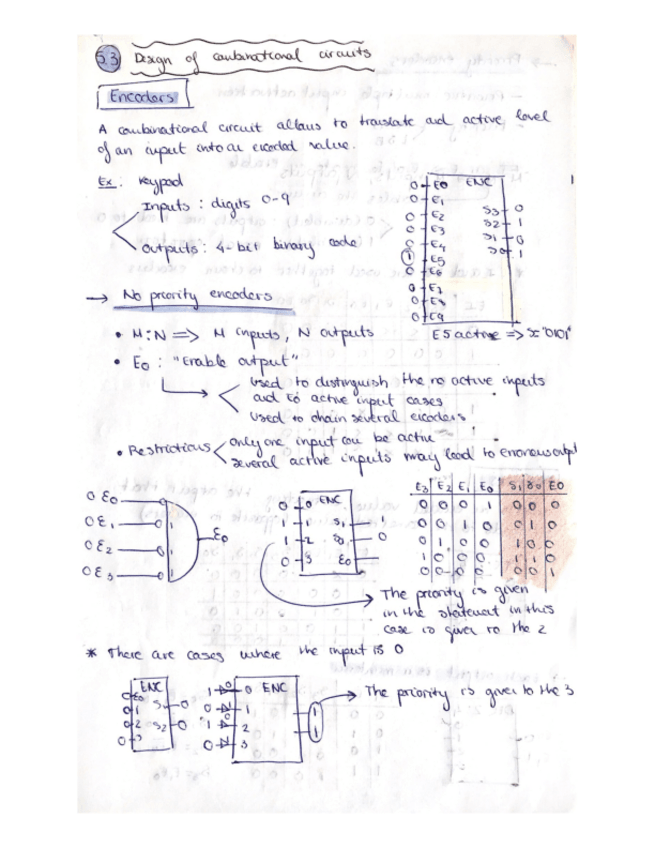 5.3 Design of combinational circuits
Encoders
A combinational circuit allows to translate and active level
of an input into an encoded value.
Ex: Keypad
Inputs: digits 0-9
Outputs: 4-bit binary code
0 E0 ENC
0 E1
0 E2 S3 0
0 E3 S2 1
0 E4 S1 0
1 E5 S0 1
0 E6
0 E7
0 E8
0 E9
E5 active => s "0101"
→ No priority encoders
• M:N => M inputs, N outputs
• E0: "Enable output"
used to distinguish the no active inputs
and E0 active input cases
used to chain several encoders.
• Restrictions
only one input can be active
several active inputs may lead to
0 E0
0 E1
0 E2
0 E3
E0
0 0 ENC
1 1 S1
1 2 0
0 3 E0
E3 E2 E1 E0 S1 S0 E0
0 0 0 1 0 0 0
0 0 1 0 0 1 0
0 1 0 0 1 0 0
1 0 0 0 1 1 0
0 0 0 0 0 0 1
The priority is given
in the statement in this
case is given to the 2
* There are cases where the input is 0
ENC
0 E0
0 1 0
0 2 S2 0
0 3
1 0 ENC
0 1 1
1 2 1
0 3
The priority is given to the 3